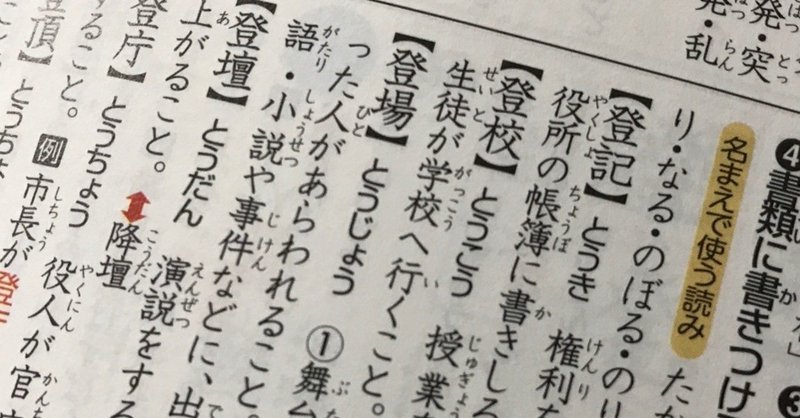 発・突
発・乱
❹書類に書きつけ
名まえで使う読み た
り・なる・のぼる・のり
【登記】とうき 権利を
役所の帳簿に書きしる
【登校】とうこう 授業
生徒が学校へ行くこと。
【登場】とうじょう ①舞
った人があらわれること。
語・小説や事件などに、出
【登壇】とうだん 演説をする
上がること。⇔降壇
登庁】とうちょう 役人が官
ること。 例 市長が登
頂】とうちょ